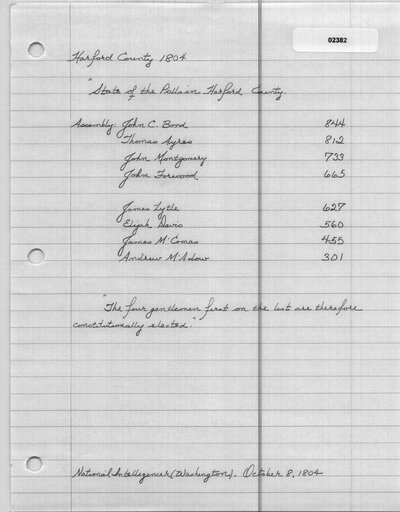 02382
Harford County 1804
"State of the Polls in Harford County.
Assembly: John C. Bond 844
Thomas Ayres 812
John Montgomery 733
John Forwood 665
James Lytle 627
Elijah Davis 560
James McComas 455
Andrew McAdow 301
"The four gentlemen first on the list are therefore
constitutionally elected."
National Intelligencer (Washington). October 8, 1804